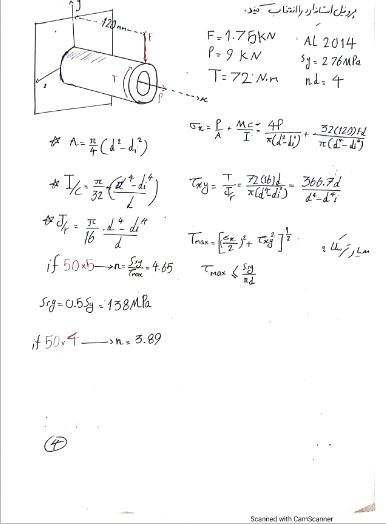 پروفیل استاندارد را انتخاب کنید.
y
120mm
F
T
P
x
z
F = 1.75KN
P = 9 KN
T = 72 N.m
AL 2014
Sy = 276MPa
nd = 4
σx = P/A + Mc/I = 4P/π(d²-di²) + 32(120)Fd/π(d⁴-di⁴)
☆ A = π/4 (d²-di²)
☆ I/c = π/32 (d⁴-di⁴/d)
τxy = T/J/r = 72(16)d/π(d⁴-di⁴) = 366.7d/d⁴-di⁴
☆ J/r = π/16 · d⁴-di⁴/d
τmax = [(σx/2)² + τxy²]^1/2
if 50×5 → n = Ssy/τmax = 4.65
τmax ≤ Ssy/nd
Ssy = 0.5Sy = 138MPa
if 50×4 → n = 3.89
4
Scanned with CamScanner